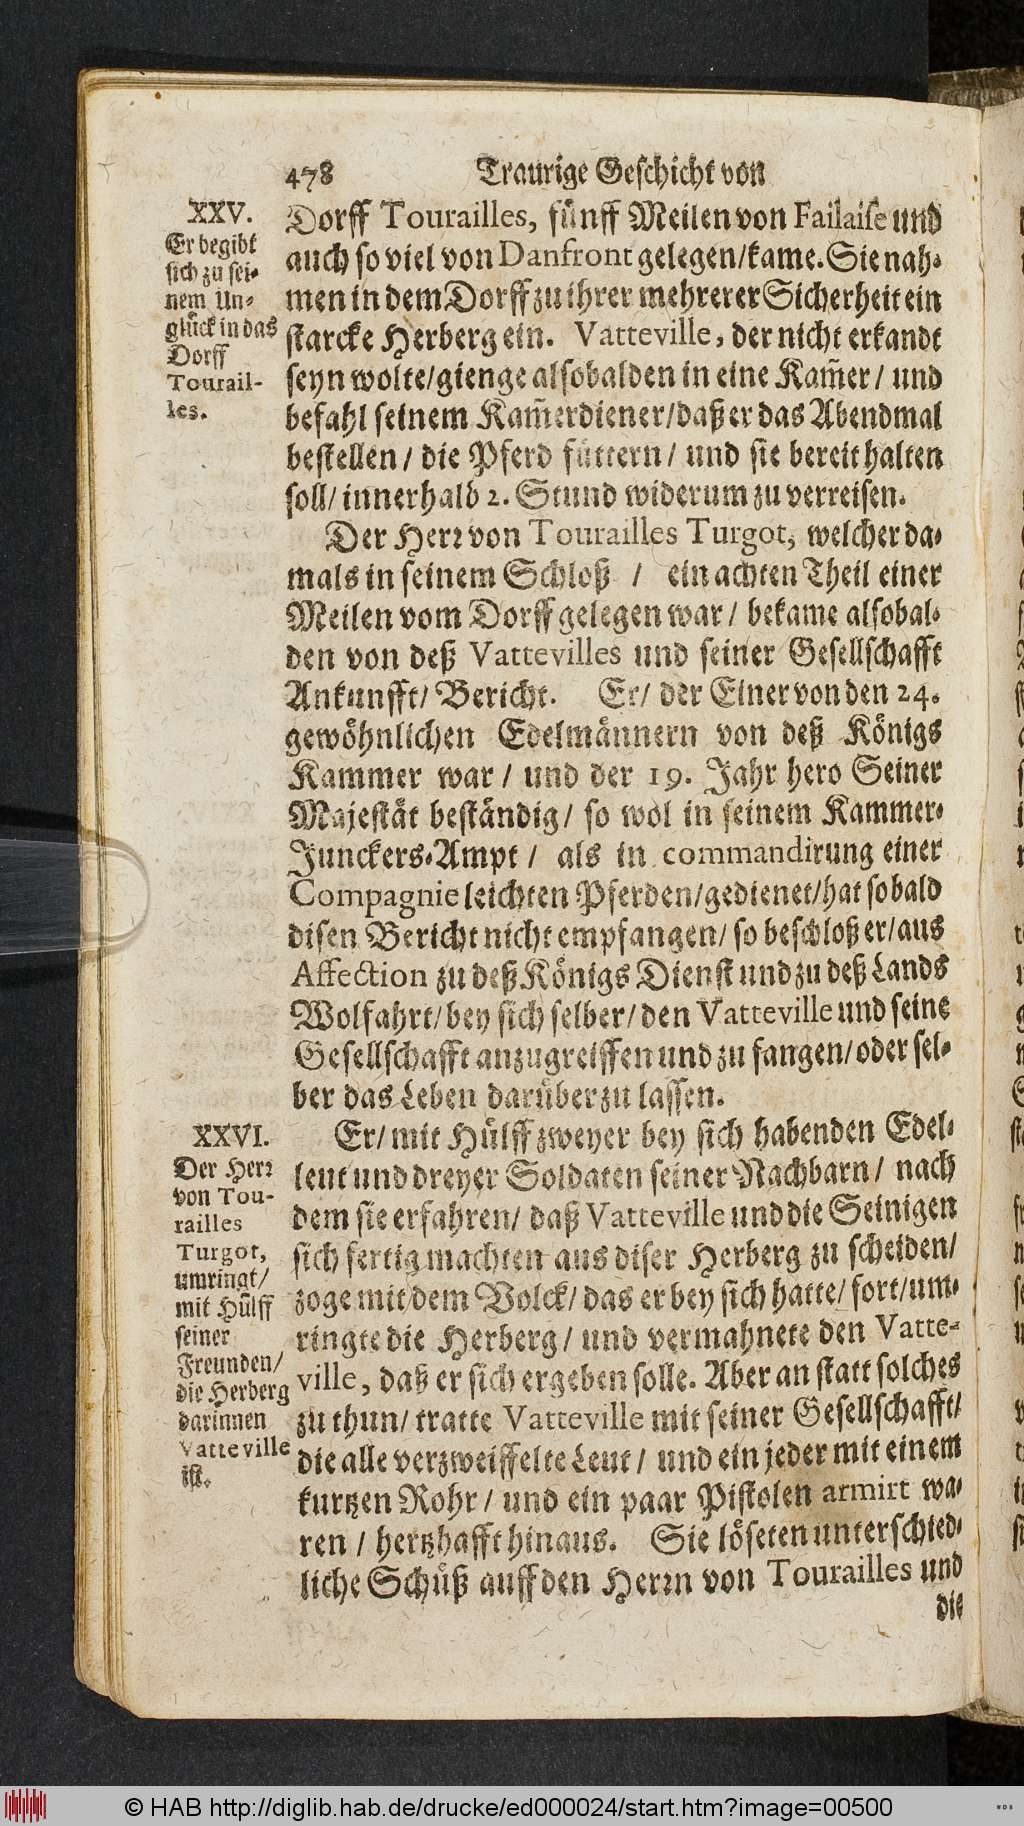 478 Traurige Geschicht von
XXV.
Er begibt
sich zu sei-
nem Un-
glück in das
Dorff
Tourail-
les.
Dorff Tourailles, fünff Meilen von Failaise und
auch so viel von Danfront gelegen/kame. Sie nah-
men in dem Dorff zu ihrer mehrerer Sicherheit ein
starcke Herberg ein. Vatteville, der nicht erkandt
seyn wolte/gienge alsobalden in eine Kam̃er/ und
befahl seinem Kam̃erdiener/daß er das Abendmal
bestellen/ die Pferd füttern/ und sie bereit halten
soll/ innerhalb 2. Stund widerum zu verreisen.
Der Herr von Tourailles Turgot, welcher da-
mals in seinem Schloß / ein achten Theil einer
Meilen vom Dorff gelegen war/ bekame alsobal-
den von deß Vattevilles und seiner Gesellschafft
Ankunfft/ Bericht. Er/ der Einer von den 24.
gewöhnlichen Edelmännern von deß Königs
Kammer war/ und der 19. Jahr hero Seiner
Majestät beständig/ so wol in seinem Kammer-
Junckers-Ampt / als in commandirung einer
Compagnie leichten Pferden/gedienet/hat so bald
disen Bericht nicht empfangen/ so beschloß er/aus
Affection zu deß Königs Dienst und zu deß Lands
Wolfahrt/bey sich selber/den Vatteville und seine
Gesellschafft anzugreiffen und zu fangen/oder sel-
ber das Leben darüber zu lassen.
XXVI.
Der Herr
von Tou-
railles
Turgot,
umringt/
mit Hülff
seiner
Freunden/
die Herberg
darinnen
Vatteville
ist.
Er/ mit Hülff zweyer bey sich habenden Edel-
leut und dreyer Soldaten seiner Nachbarn/ nach
dem sie erfahren/ daß Vatteville und die Seinigen
sich fertig machten aus diser Herberg zu scheiden/
zoge mit dem Volck/ das er bey sich hatte/ fort/um-
ringte die Herberg/ und vermahnete den Vatte-
ville, daß er sich ergeben solle. Aber an statt solches
zu thun/ tratte Vatteville mit seiner Gesellschafft/
die alle verzweiffelte Leut/ und ein jeder mit einem
kurtzen Rohr/ und ein paar Pistolen armirt wa-
ren / hertzhafft hinaus. Sie löseten unterschied-
liche Schüß auff den Herrn von Tourailles und
die
© HAB http://diglib.hab.de/drucke/ed000024/start.htm?image=00500